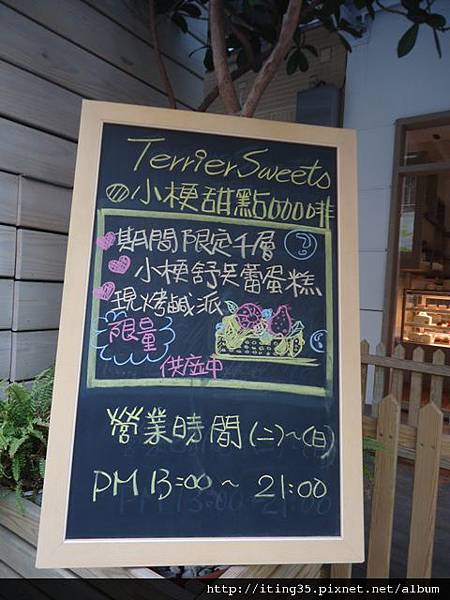 Terrier Sweets
小梗甜點咖啡
期間限定千層
小梗舒芙蕾蛋糕
現烤鹹派
限量
供應中
營業時間(二)~(日)
PM 13:00 ~ 21:00
http://iting35.pixnet.net/album